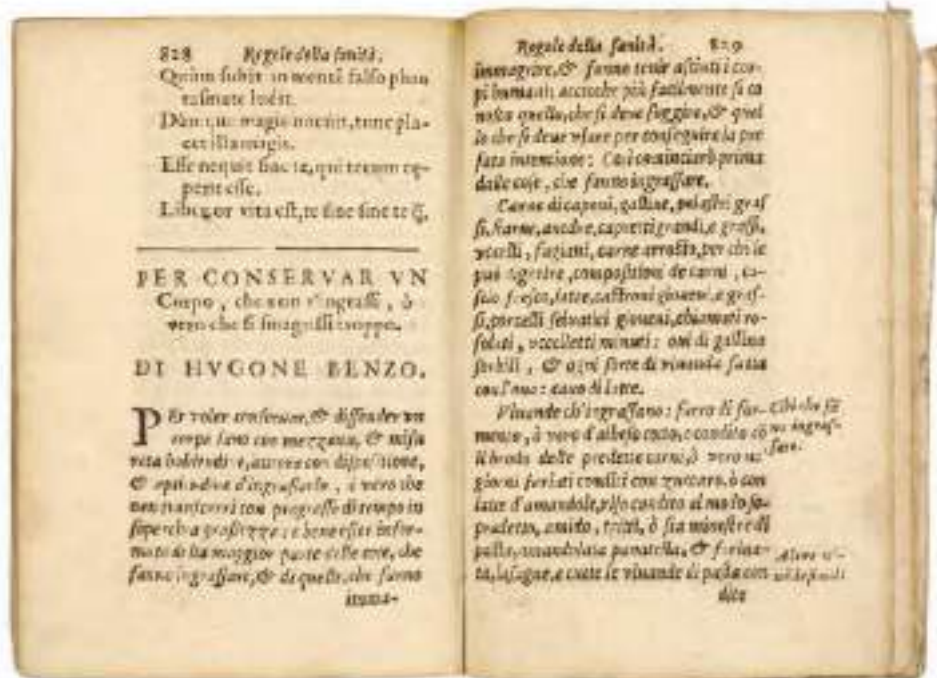 828 Regole della sanità.
Quum subit in mentē falso phan
tasmate
magis nocuit, tunc pla-
cet illa magis.
Esse nequit sine te, qui tecum
esse.
vita est, te sine sine te q̃.
PER CONSERVAR VN
Corpo, che non s'ingrassi, ò
vero che si smagrissi troppo.
DI HVGONE BENZO.
PEr voler conseruare, & diffender vn
corpo sano con mezzana, &
con dispositione,
& d'ingrassarsi, ò vero che
non transcorri con progresso di tempo in
superchia grassezza: è bene esser infor-
mato della maggior parte delle cose, che
fanno ingrassare, & di quelle, che fanno
imma-
Regole della sanità. 829
immagrire, & fanno tenir i cor-
pi humani accioche più facilmente si co
nosca quello, che si deue fuggire, & quel
lo che si deue vsare per conseguire la pre
fata intencione: Cosi cominciarò prima
dalle cose, che fanno ingrassare.
Carne di caponi, galline, polastri gras
si, starne, anedre, capretti grandi, e grassi,
vcelli, fagiani, carne arrosto, per chi le
può digerire, compositioni de carni, ca-
scio fresco, latte, castroni gioueni, e gras-
si, porcelli seluatici gioueni, chiamati ro-
solati, vccelletti minuti: oui di gallina
sorbili, & ogni sorte di viuanda fatta
con l'ouo: cauo di latte.
Viuande ch'ingrassano: farro di for-
mento, ò vero d'albeso cotto, e condito cō
il brodo delle predette carni, ò vero ne
giorni feriati conditi con zuccaro, ò con
latte d'amandole, riso condito al modo so-
pradetto, amido, tritti, ò sia minestre di
pasta, panatella, & farina-
ta, lasagne, e tutte le viuande di pasta con
dite
Cibi che fā
no ingras-
sare.